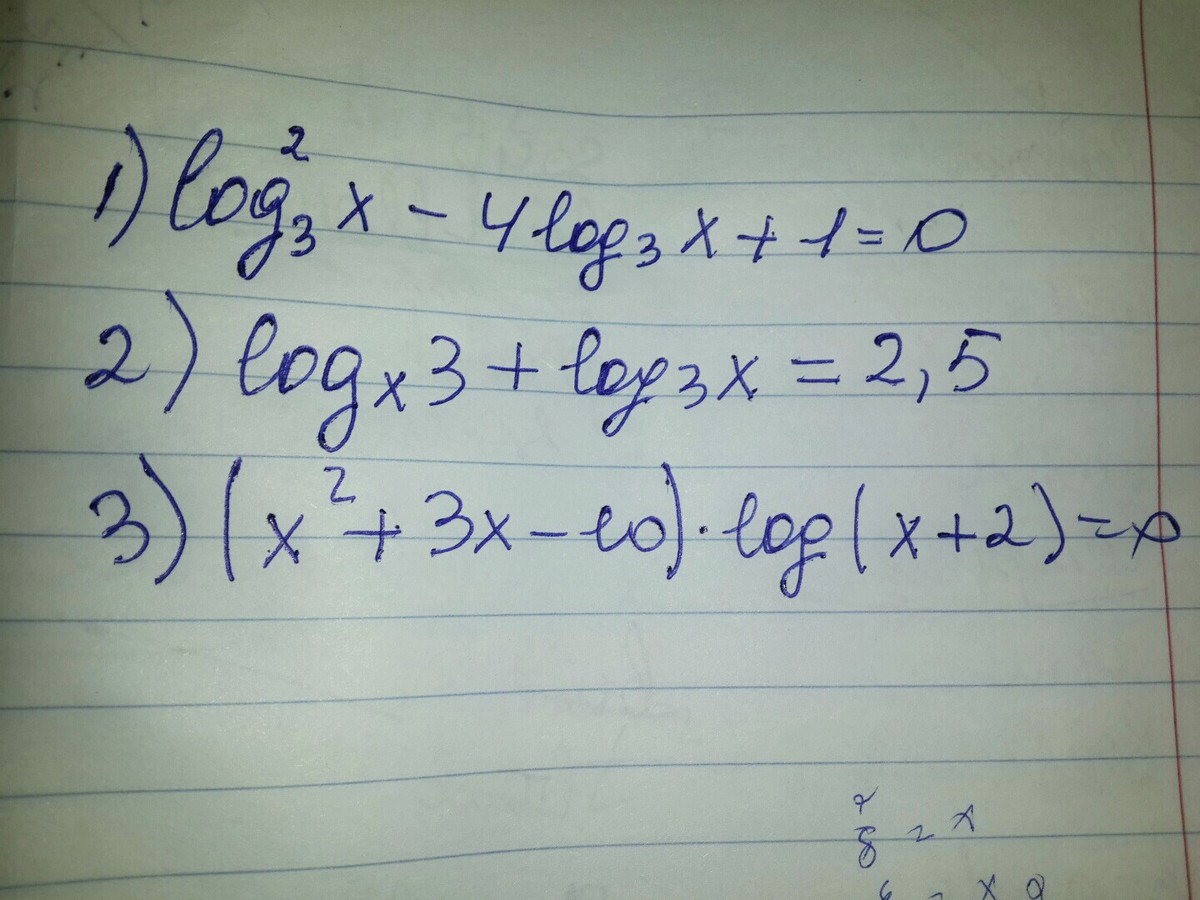 1) log₃² x - 4 log₃ x + 1 = 0
2) logₓ 3 + log₃ x = 2,5
3) (x² + 3x - 10) · log(x + 2) = 0
7
8 = x
6 = x